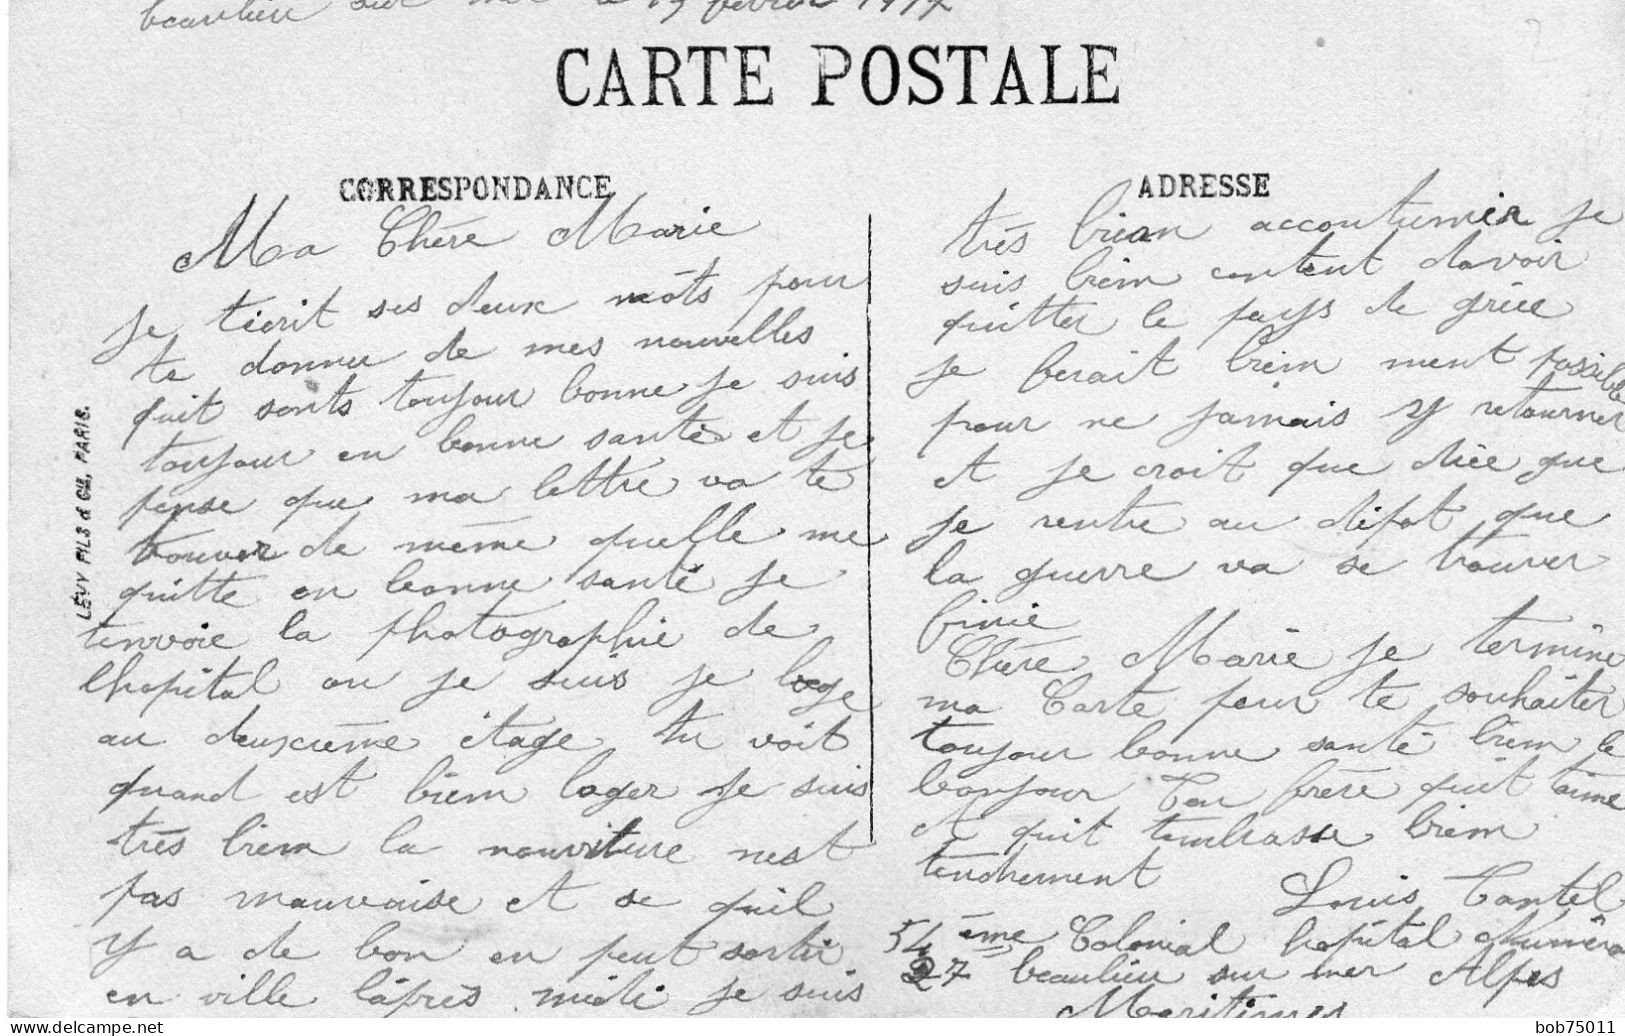 beaulieu sur mer le 19 février 1917
CARTE POSTALE
CORRESPONDANCE
Ma Chère Marie
je técrit ses deux mots pour
te donner de mes nouvelles
quit sonts toujour bonne je suis
toujour en bonne santé et je
pense que ma lettre va te
trouver de même quelle me
quitte en bonne santé je
tenvoie la photographie de
lhopital ou je suis je loge
au deuxcième étage tu voit
quand est bièm loger je suis
très bièm la nourriture nest
pas mauvaise et se quil
y a de bon en peut sortir
en ville láprès midi je suis
LÉVY FILS & Cie, PARIS.
ADRESSE
très bien accoutumér je
suis bièm content davoir
quitter le pays de grèce
je ferait bièm ment possible
pour ne jamais y retourner
et je croit que dièe que
je rentre au dépot que
la guerre va se trouver
finie
Chère Marie je termine
ma Carte pour te souhaiter
toujour bonne santé bièm le
bonjour Ton frère quit taime
et quit tembrasse bièm
tendrement
Louis Cantel
54 ème Colonial hopital Numèro
27 beaulieu sur mer Alpes
Maritimes
bob75011
www.delcampe.net